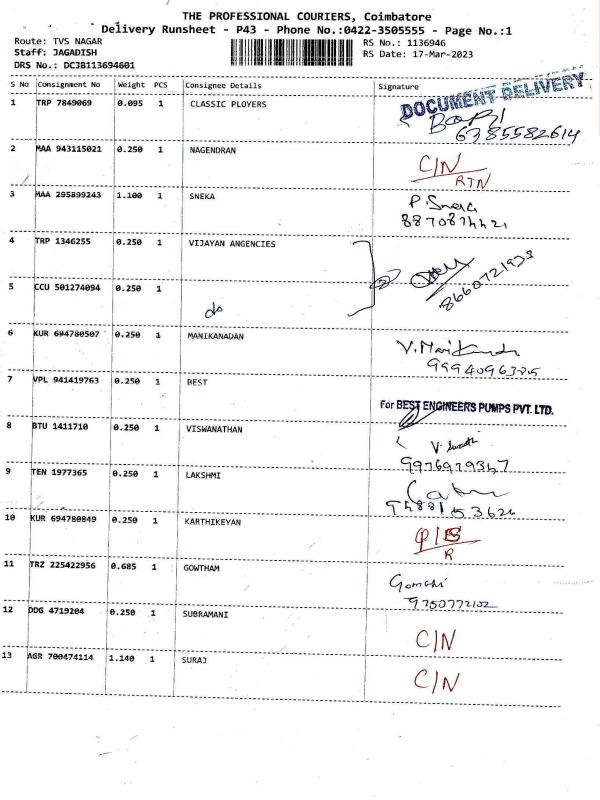 THE PROFESSIONAL COURIERS, Coimbatore
Delivery Runsheet - P43 - Phone No.:0422-3505555 - Page No.:1
Route: TVS NAGAR
Staff: JAGADISH
DRS No.: DCJB113694601
RS No.: 1136946
RS Date: 17-Mar-2023
S No Consignment No Weight PCS Consignee Details Signature
1 TRP 7849069 0.095 1 CLASSIC PLOYERS DOCUMENT DELIVERY
6385582614
2 MAA 943115021 0.250 1 NAGENDRAN C/N
RTN
3 MAA 295899243 1.100 1 SNEKA P. Sneka
8870874421
4 TRP 1346255 0.250 1 VIJAYAN ANGENCIES
8660721933
5 CCU 501274094 0.250 1 do
6 KUR 694780507 0.250 1 MANIKANADAN
9994096325
7 VPL 941419763 0.250 1 BEST For BEST ENGINEERS PUMPS PVT. LTD.
8 BTU 1411710 0.250 1 VISWANATHAN
9976979347
9 TEN 1977365 0.250 1 LAKSHMI
9488153626
10 KUR 694780849 0.250 1 KARTHIKEYAN
R
11 TRZ 225422956 0.685 1 GOWTHAM
9750772102
12 DDG 4719204 0.250 1 SUBRAMANI C/N
13 AGR 700474114 1.140 1 SURAJ C/N